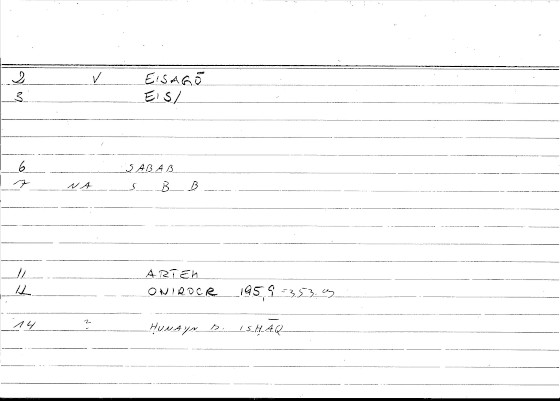 2 V EISAGŌ
3 EIS/
6 SABAB
7 NA S B B
11 ARTEM
12 ONIROCR 195,9 = 353.
14 ? ḤUNAYN B. ISḤĀQ